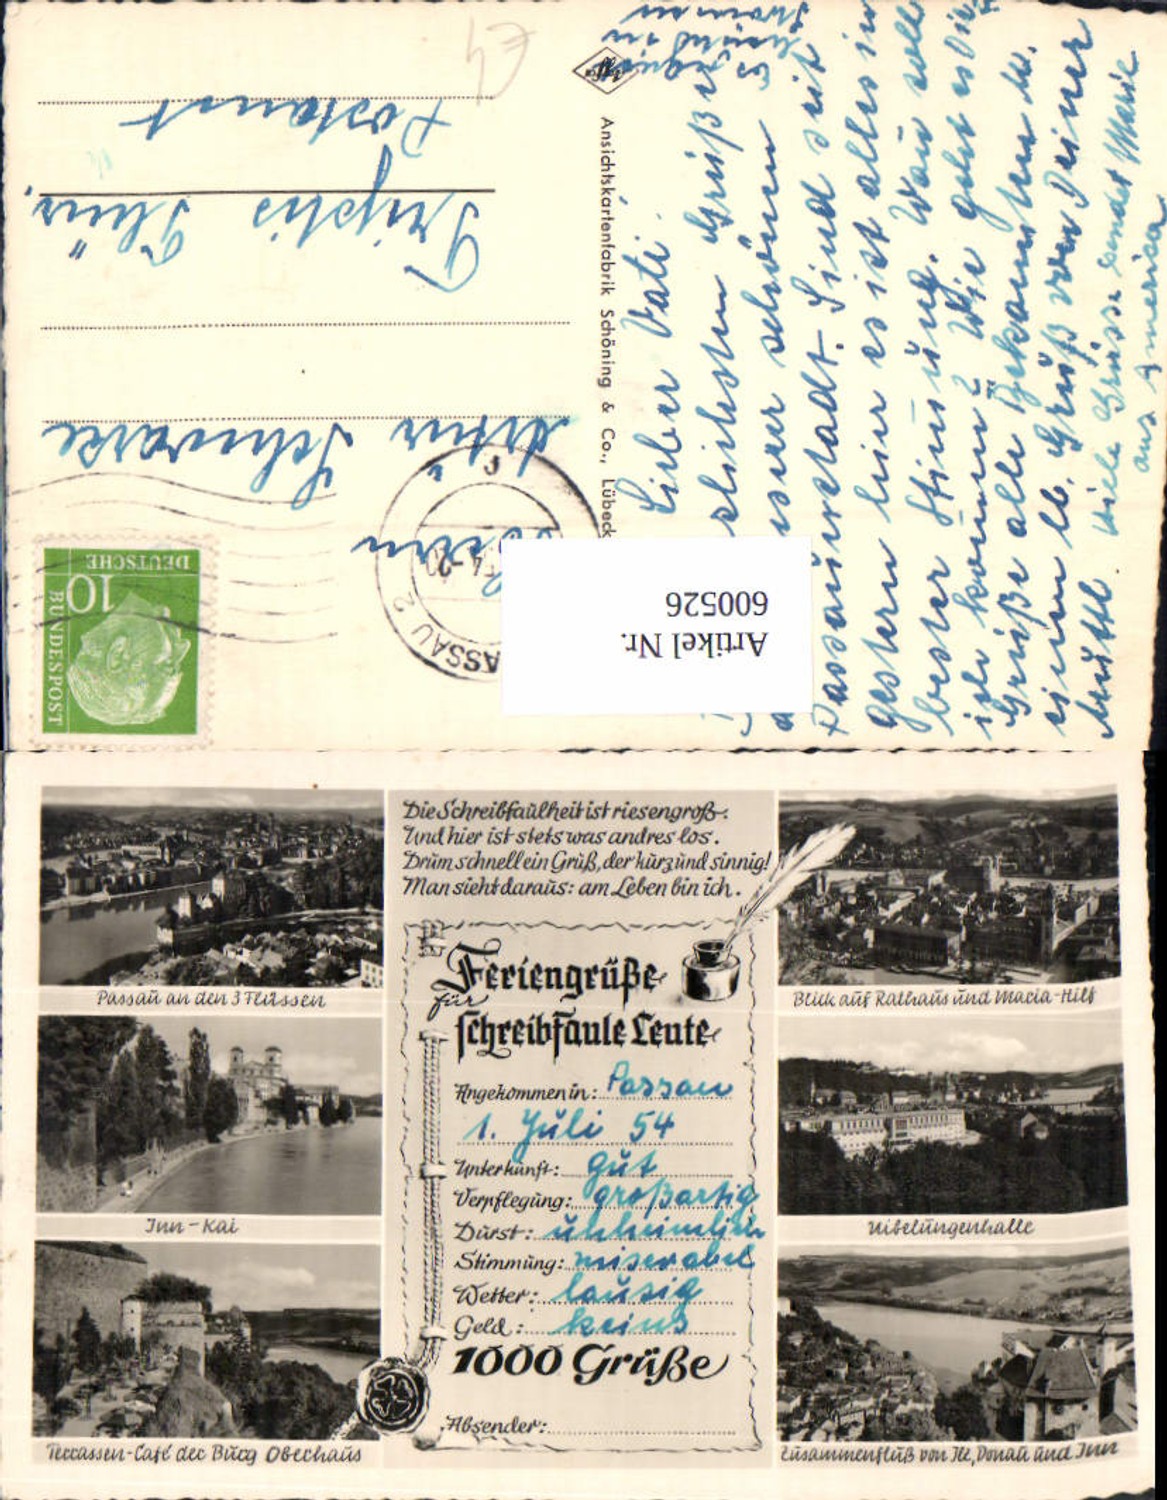 Lieber Vati!
Grüße
schönen
Passauinstadt. Sind seit
gestern hier es ist alles in
bester Stimmung. Wau soll
ich kommen? Wie geht es Dir
Grüße alle Bekannten
einen lb. Gruß von Deiner
Mutti. Viele Grüsse sendet Marie
aus Amerika
Ansichtskartenfabrik Schöning & Co., Lübeck
DEUTSCHE
BUNDESPOST
10
PASSAU 2
Herrn
Artur Schwarze
Triptis Thür.
Postamt
Artikel Nr.
600526
Die Schreibfaulheit ist riesengroß.
Und hier ist stets was andres los.
Drum schnell ein Gruß, der kurz und sinnig!
Man sieht daraus: am Leben bin ich.
Feriengrüße
für
schreibfaule Leute
Angekommen in: Passau
1. Juli 54
Unterkunft: gut
Verpflegung: großartig
Durst: unheimlich
Stimmung: miserabel
Wetter: lausig
Geld: keins
1000 Grüße
Absender:
Passau an den 3 Flüssen
Inn-Kai
Terrassen-Café der Burg Oberhaus
Blick auf Rathaus und Maria-Hilf
Nibelungenhalle
Zusammenfluß von Ilz, Donau und Inn